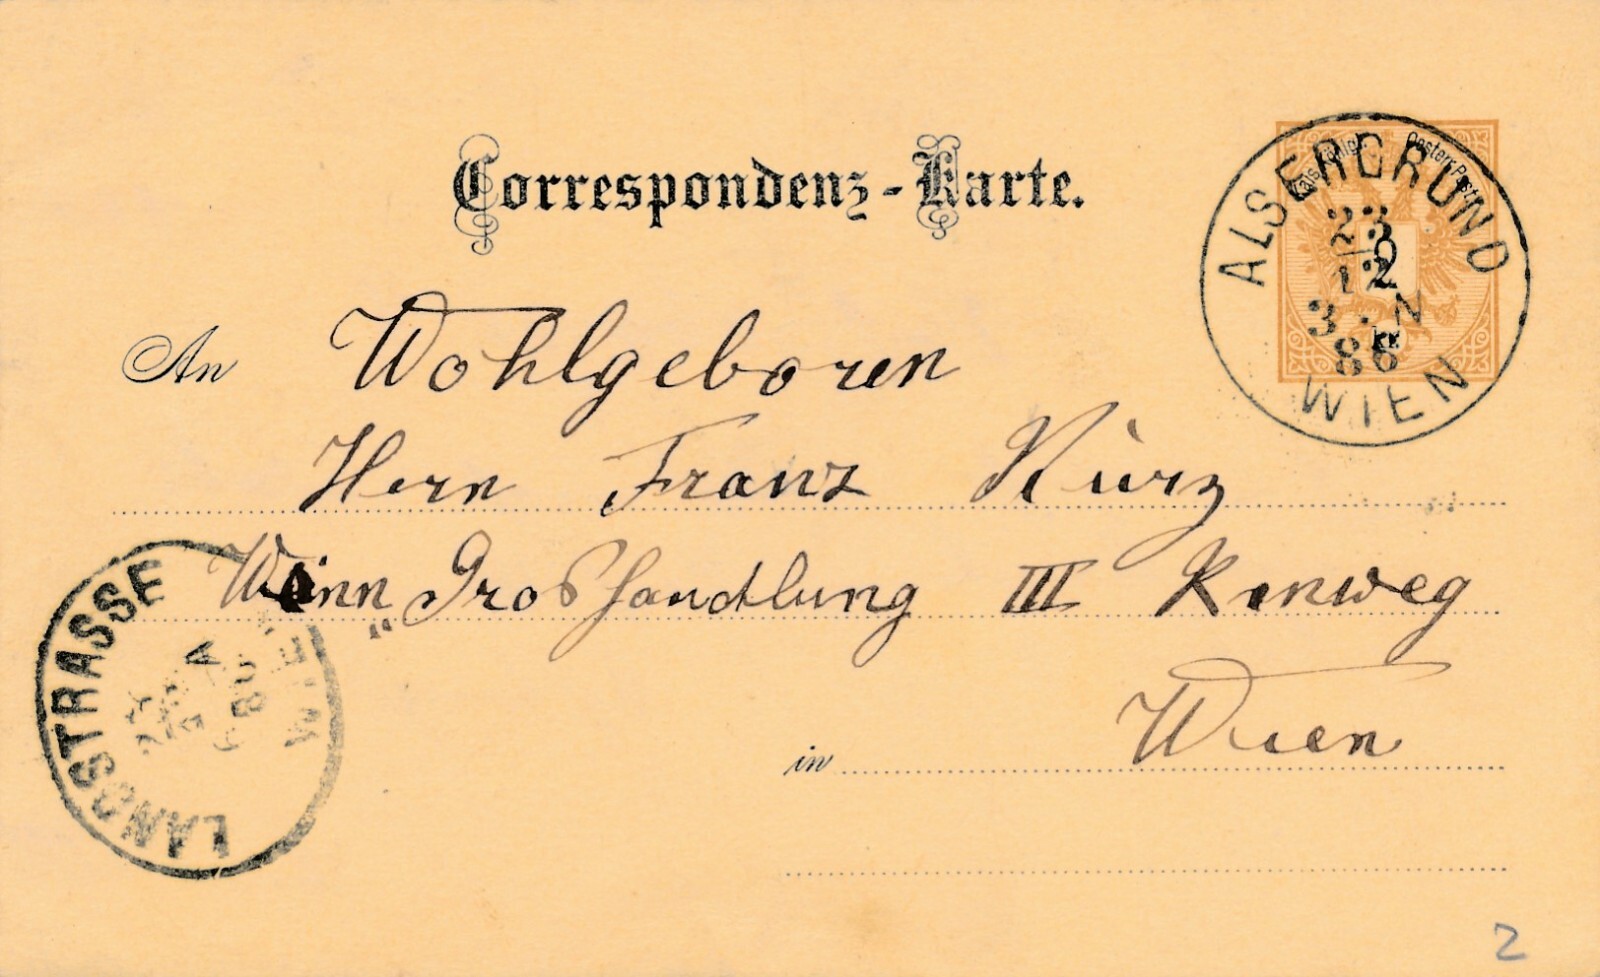 Correspondenz-Karte.
Kais. Königl. Oesterr. Post
2
ALSERGRUND
23
12
3·N
86
WIEN
An Wohlgeboren
Herrn Franz Kürz
Weinn Großhandlung III Renweg
in Wien
LANDSTRASSE
WIEN
2